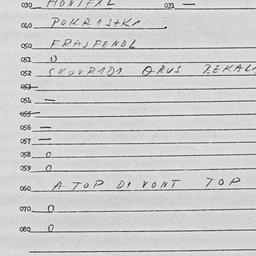 030 MONTEXL 031 —
040 POKRISTKA
050 FRAJFENDL
051 0
052 SKOVRIDI ORUS
053
054 —
055
056 —
057 —
058 0
059 0
060 A TOP DI VONT TOP
070 0
080 0